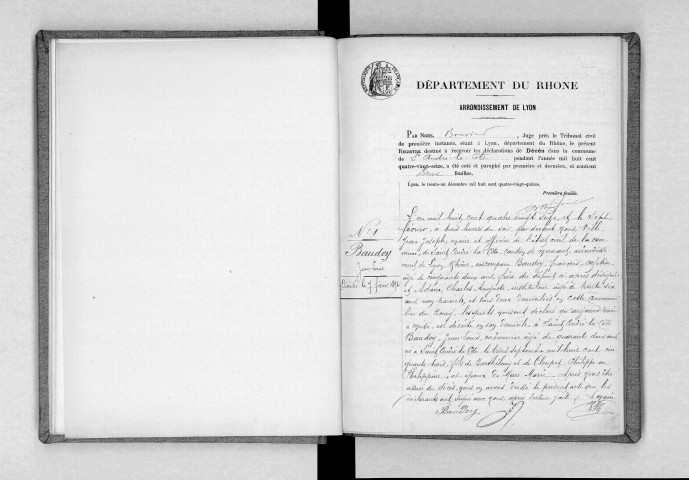 DÉPARTEMENT DU RHONE
ARRONDISSEMENT DE LYON
PAR NOUS, , Juge près le Tribunal civil
de première instance, séant à Lyon, département du Rhône, le présent
REGISTRE destiné à recevoir les déclarations de Décès dans la commune
de St André-la-Côte pendant l'année mil huit cent
quatre-vingt-seize, a été coté et paraphé par première et dernière, et contient
feuilles.
Lyon, le trente-un décembre mil huit cent quatre-vingt-quinze.
Première feuille.
No 1
Baudoy
Jean Louis
Décédé le 7 février 1896
L'an mil huit cent quatre vingt seize, et le sept
février, à trois heures du soir, par devant nous
Jean Joseph, maire et officier de l'état civil de la com
mune de Saint André la Côte, canton de Mornant, arrondisse
ment de Lyon, Rhône, ont comparu Baudoy, françois,
âgé de cinquante deux ans, frère du défunt ci-après désigné
et Charles Auguste, instituteur âgé de trente six
ans non parent, et tous deux domiciliés en cette commune
lieu du Bourg, lesquels nous ont déclaré qu'aujourd'hui
à midi, est décédé en son domicile à Saint André la Côte
Baudoy, Jean Louis, âgé de quarante deux ans
né à Saint André la Côte, le septembre mil huit cent cin
quante trois, fils de Barthélemy et de Philippine
et époux de Marie. Après nous être
assuré du décès, nous en avons dressé le présent acte que les
déclarants ont signé avec nous, après lecture faite
Baudoy